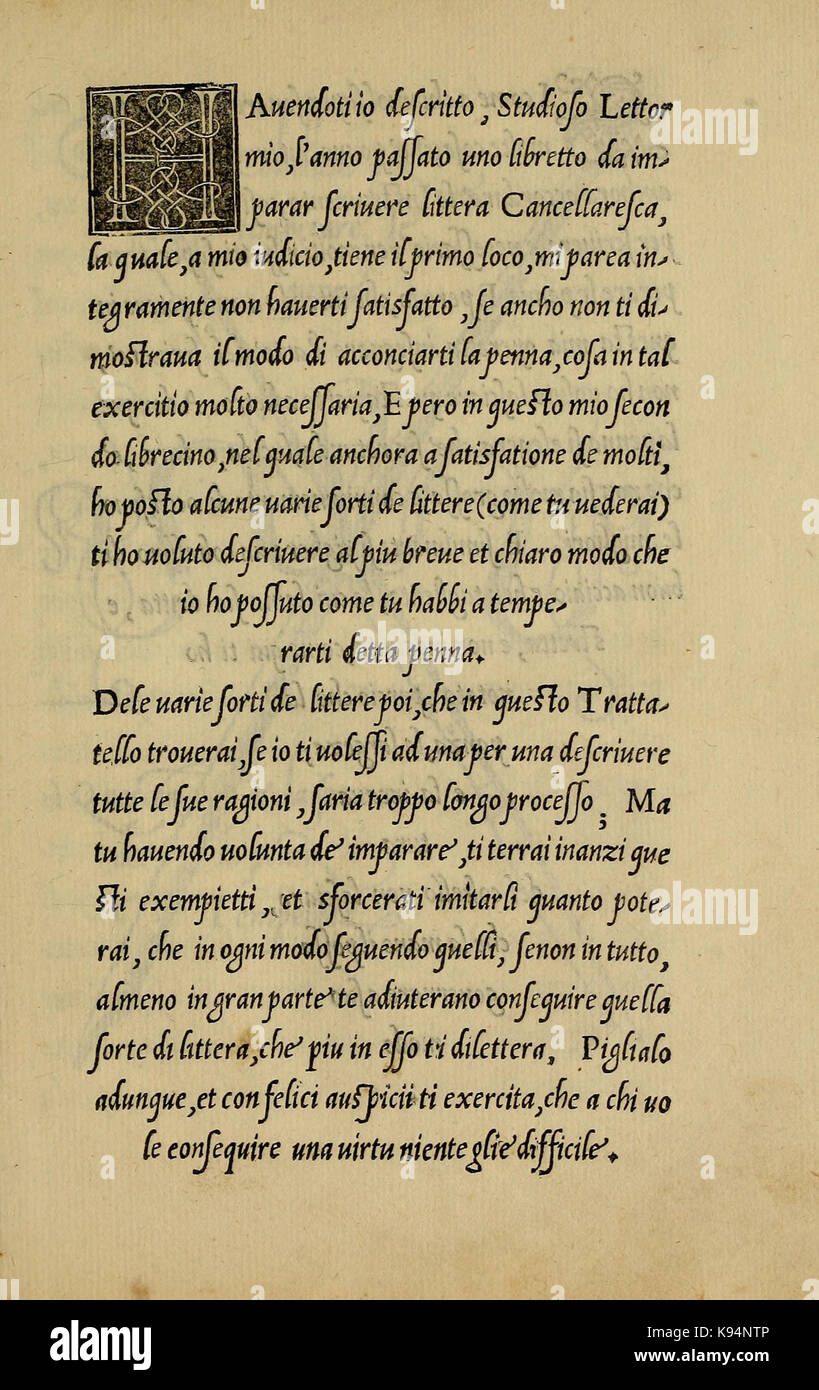 HAuendoti io deſcritto, Studioſo Lettor
mio, l'anno paſſato uno libretto da im-
parar ſcriuere littera Cancellareſca,
la quale, a mio iudicio, tiene il primo loco, mi parea in-
tegramente non hauerti ſatisfatto, ſe ancho non ti di-
moſtraua il modo di acconciarti la penna, coſa in tal
exercitio molto neceſſaria, E pero in queſto mio ſecon
do librecino, nel quale anchora a ſatisfatione de molti,
ho poſto alcune uarie ſorti de littere (come tu uederai)
ti ho uoluto deſcriuere al piu breue et chiaro modo che
io ho poſſuto come tu habbi a tempe-
rarti detta penna.
Dele uarie ſorti de littere poi, che in queſto Tratta-
tello trouerai, ſe io ti uoleſſi ad una per una deſcriuere
tutte le ſue ragioni, ſaria troppo longo proceſſo; Ma
tu hauendo uolunta de imparare, ti terrai inanzi que
ſti exempietti, et sforcerati imitarli quanto pote-
rai, che in ogni modo ſeguendo quelli, ſenon in tutto,
almeno in gran parte te adiuterano conſequire quella
ſorte di littera, che piu in eſſo ti dilettera, Piglialo
adunque, et con felici auſpicii ti exercita, che a chi uo
le conſequire una uirtu niente glie difficile.
alamy stock photo
alamy
K94NTP
www.alamy.com